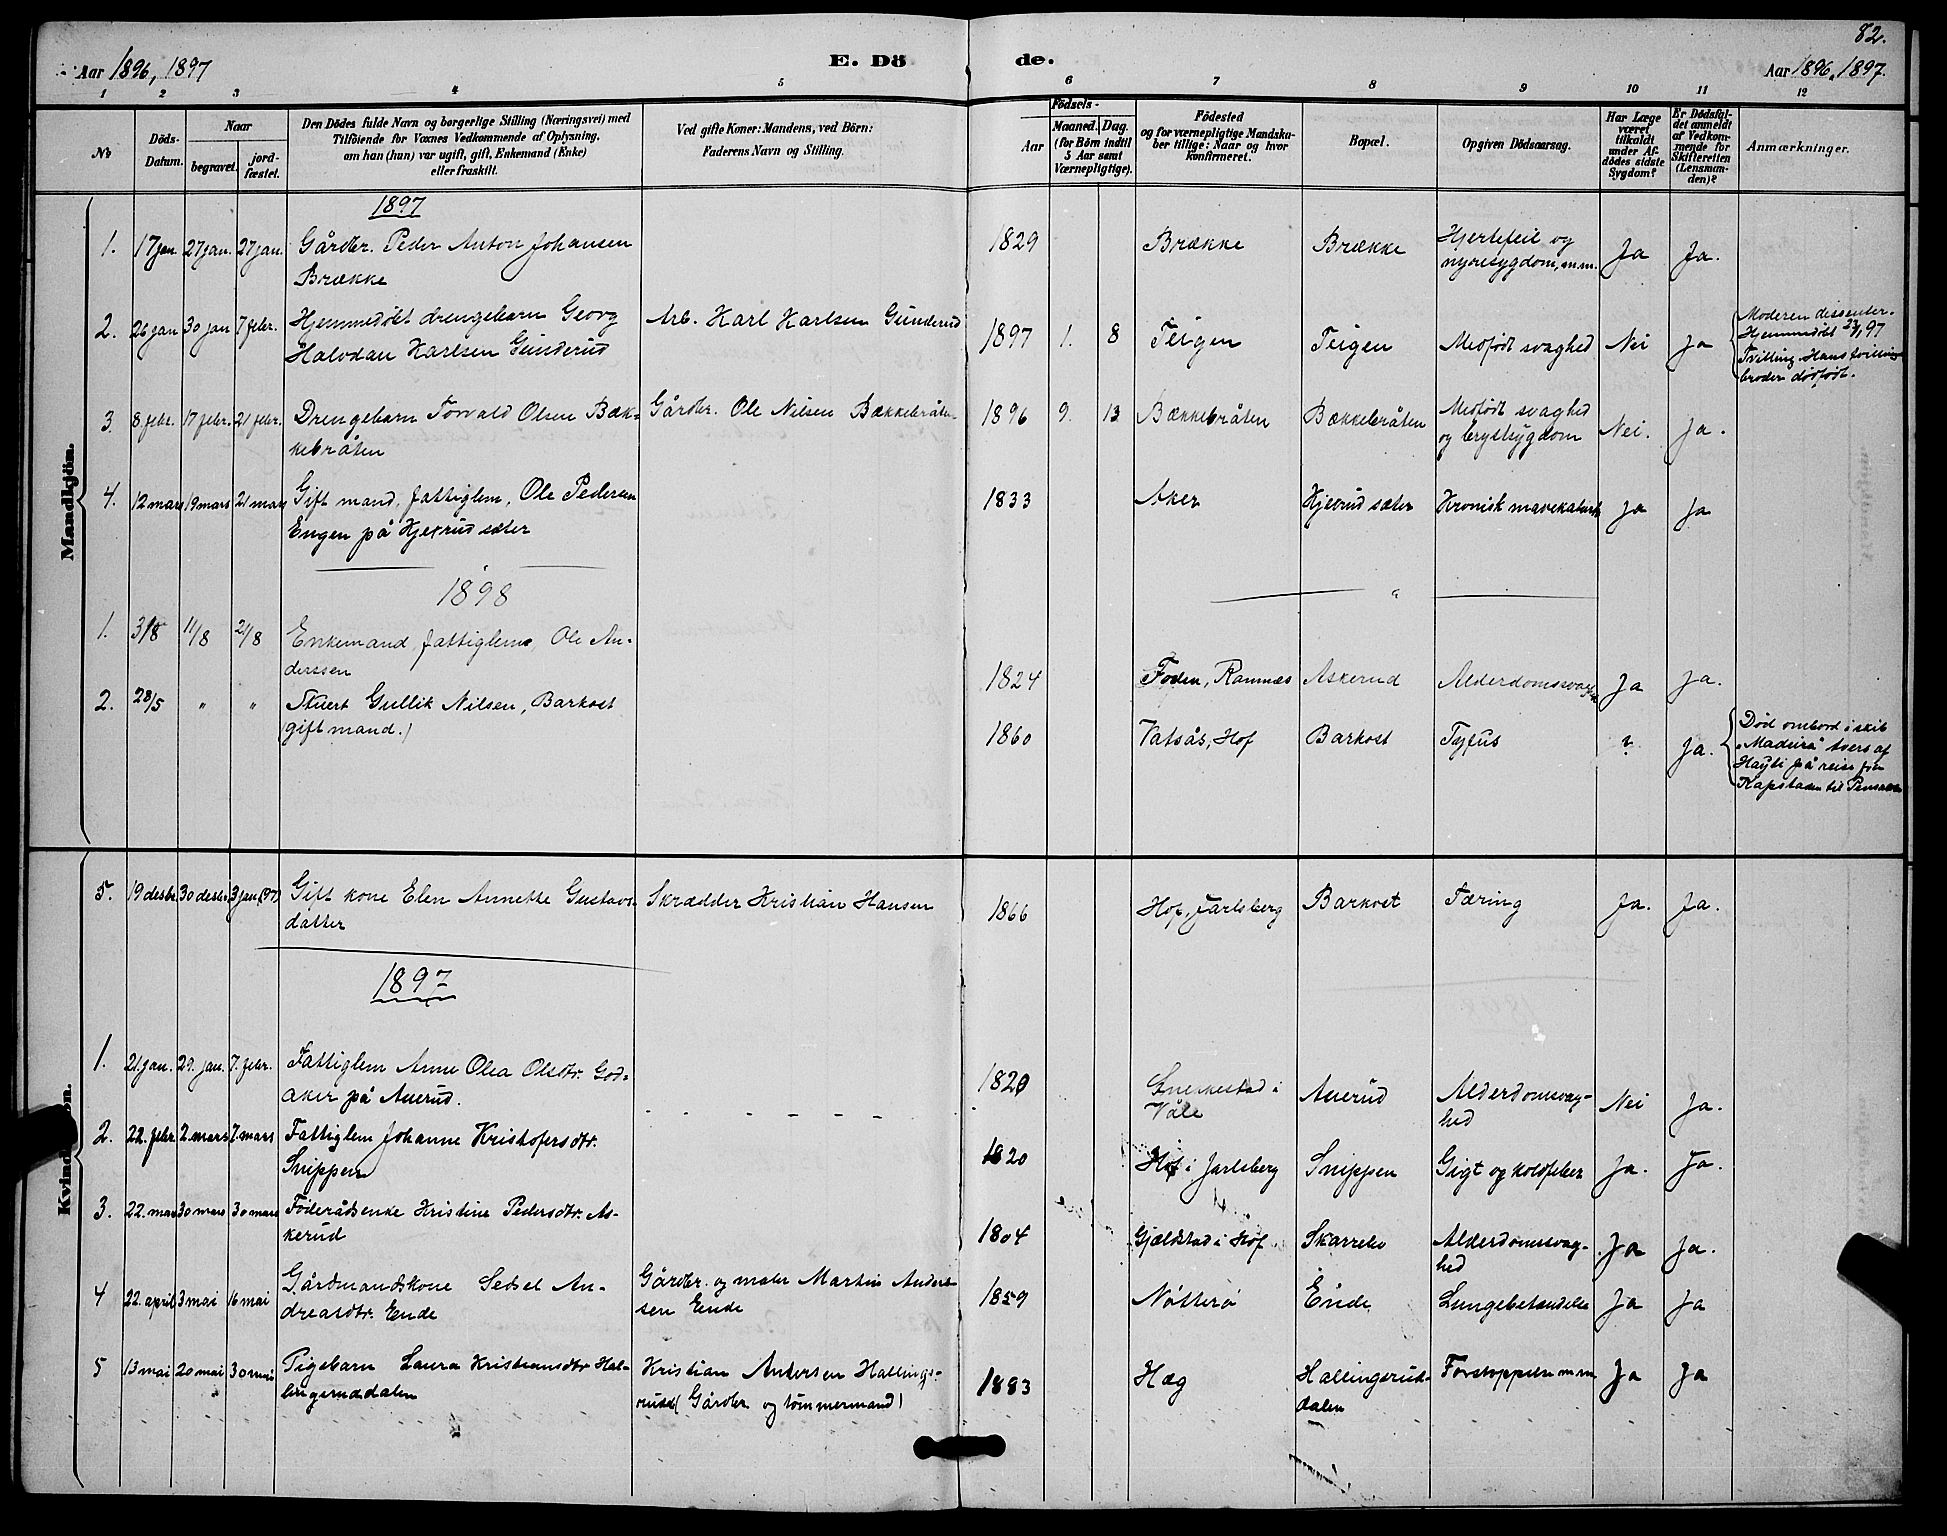 82.
Aar 1896, 1897 E. Dö de. Aar 1896, 1897.
1 2 3 4 5 6 7 8 9 10 11 12
No
Döds-Datum.
Naar
begravet.
jordfæstet.
Den Dödes fulde Navn og borgerlige Stilling (Næringsvei) med
Tilföiende for Voxnes Vedkommende af Oplysning,
om han (hun) var ugift, gift, Enkemand (Enke)
eller fraskilt.
Ved gifte Koner: Mandens, ved Börn:
Faderens Navn og Stilling.
Födsels-
Aar
Maaned. Dag.
(for Börn indtil
5 Aar samt
Værnepligtige).
Födested
og for værnepligtige Mandskaber tillige: Naar og hvor
konfirmeret.
Bopæl.
Opgiven Dödsaarsag.
Har Læge
været
tilkaldt
under Afdödes sidste
Sygdom?
Er Dödsfaldet anmeldt
af Vedkommende for
Skifteretten
(Lensmanden)?
Anmærkninger.
Mandkjön.
1897
1. 17 jan. 27 jan. 27 jan. Gårdbr. Peder Anton Johansen
Brække
1829 Brække Brække Hjertefeil og
nyresygdom, m.m. Ja Ja.
2. 26 jan 30 jan 7 febr. Hjemmedøbt drengebarn Georg
Halvdan Karlsen Gunderud
Arb. Karl Karlsen Gunderud
1897 1. 8 Teigen Teigen Medfødt svaghed Nei Ja
Moderen dissenter.
Hjemmedøbt 97
Tvilling. Hans tvilling
broder dødfødt.
3. 8. febr. 17 febr. 21 febr. Drengebarn Torvald Olsen Bæk-
kebråten
Gårdbr. Ole Nilsen Bækkebråten
1896 9. 13 Bækkebråten Bækkebråten Medfødt svaghed
og brystsygdom Nei. Ja.
4. 12 mars 19 mars 21 mars Gift mand, fattiglem, Ole Pedersen
Engen på Hjexrud sæter
1833 Aker Hjexrud sæter Kronisk mavekatarrh Ja Ja
1898
1. 3/8 11/8 21/8 Enkemand, fattiglem, Ole An-
derssen
1824 Foden, Ramnæs Askerud Alderdomssvagh. Ja Ja.
2. 28/5 " " Stuert Gullik Nilsen, Barkost
(gift mand.)
1860 Vatsås, Hof Barkost Tyfus ? Ja.
Død ombord i skib
"Madeira" tvers af
Hayti på reise fra
Kapstaden til
Kvindkjön.
5. 19 desbr. 30 desbr. 3 jan. (97) Gift kone Elen Annette Gustavs-
datter
Skrædder Kristian Hansen
1866 Hof, Jarlsberg Barkost Tæring Ja. Ja.
1897
1. 21 jan. 29. jan. 7. febr. Fattiglem Anne Olea Olsdtr. God-
aker på Auerud.
1820 i
Våle Auerud Alderdomsvag-
hed Nei Ja.
2. 22. febr 2. mars 7. mars Fattiglem Johanne Kristofersdtr.
Snippen
1820 Hof i Jarlsberg Snippen Gigt og koldfeber Ja. Ja.
3. 22. mars 30 mars 30 mars Føderådsenke Kristine Pedersdtr. As-
kerud
1804 Gjældstad i Hof Skarrebo Alderdomssvag-
hed Ja Ja.
4 22. april 3 mai 16 mai Gårdmandskone Sedsel An-
dreasdtr. Ende
Gårdbr. og maler Martin Anders-
sen Ende
1859 Nøtterø Ende Lungebetændelse Ja Ja
5 13 mai 20 mai 30 mai Pigebarn Laura Kristiansdtr. Hal-
lingsruddalen
Kristian Andersen Hallings-
rudd ( Gårdbr og tømmermand)
1883 Hæg Hallingsrud-
dalen Forstoppelse m m Ja Ja